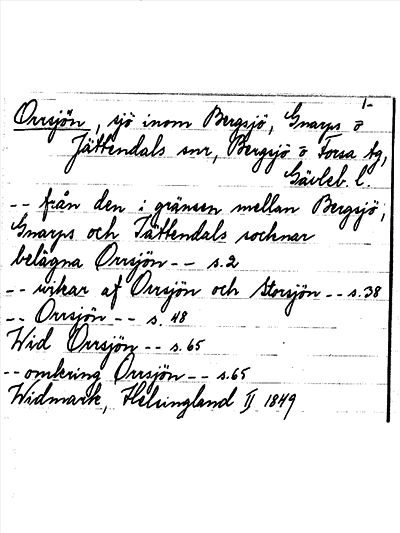 1-
Orrsjön, sjö inom Bergsjö, Gnarps o
Jättendals snr, Bergsjö o Forsa tg,
Gävleb. l.
-- från den i gränsen mellan Bergsjö,
Gnarps och Jättendals socknar
belägna Orrsjön -- s.2
-- wikar af Orrsjön och Storsjön -- s.38
-- Orrsjön -- s. 48
Wid Orrsjön -- s.65
-- omkring Orrsjön -- s.65
Widmark, Helsingland II 1849